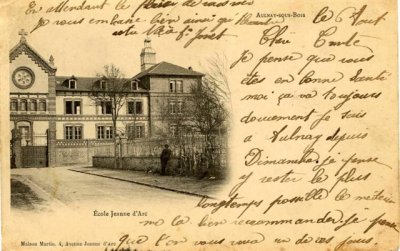 En attendant le plaisir de
je vous embrasse bien ainsi que
votre
AULNAY-SOUS-BOIS
le 6 Août
Cher Oncle
je pense que vous
êtes en bonne santé
moi ça va toujours
doucement je suis
à Aulnay depuis
Dimanche. Je pense
y rester le plus
longtemps possible le
me la bien recommander. Je pense
que l'on vous verra un de ces jours
École Jeanne d'Arc
Maison Martin, 4, Avenue Jeanne d'Arc